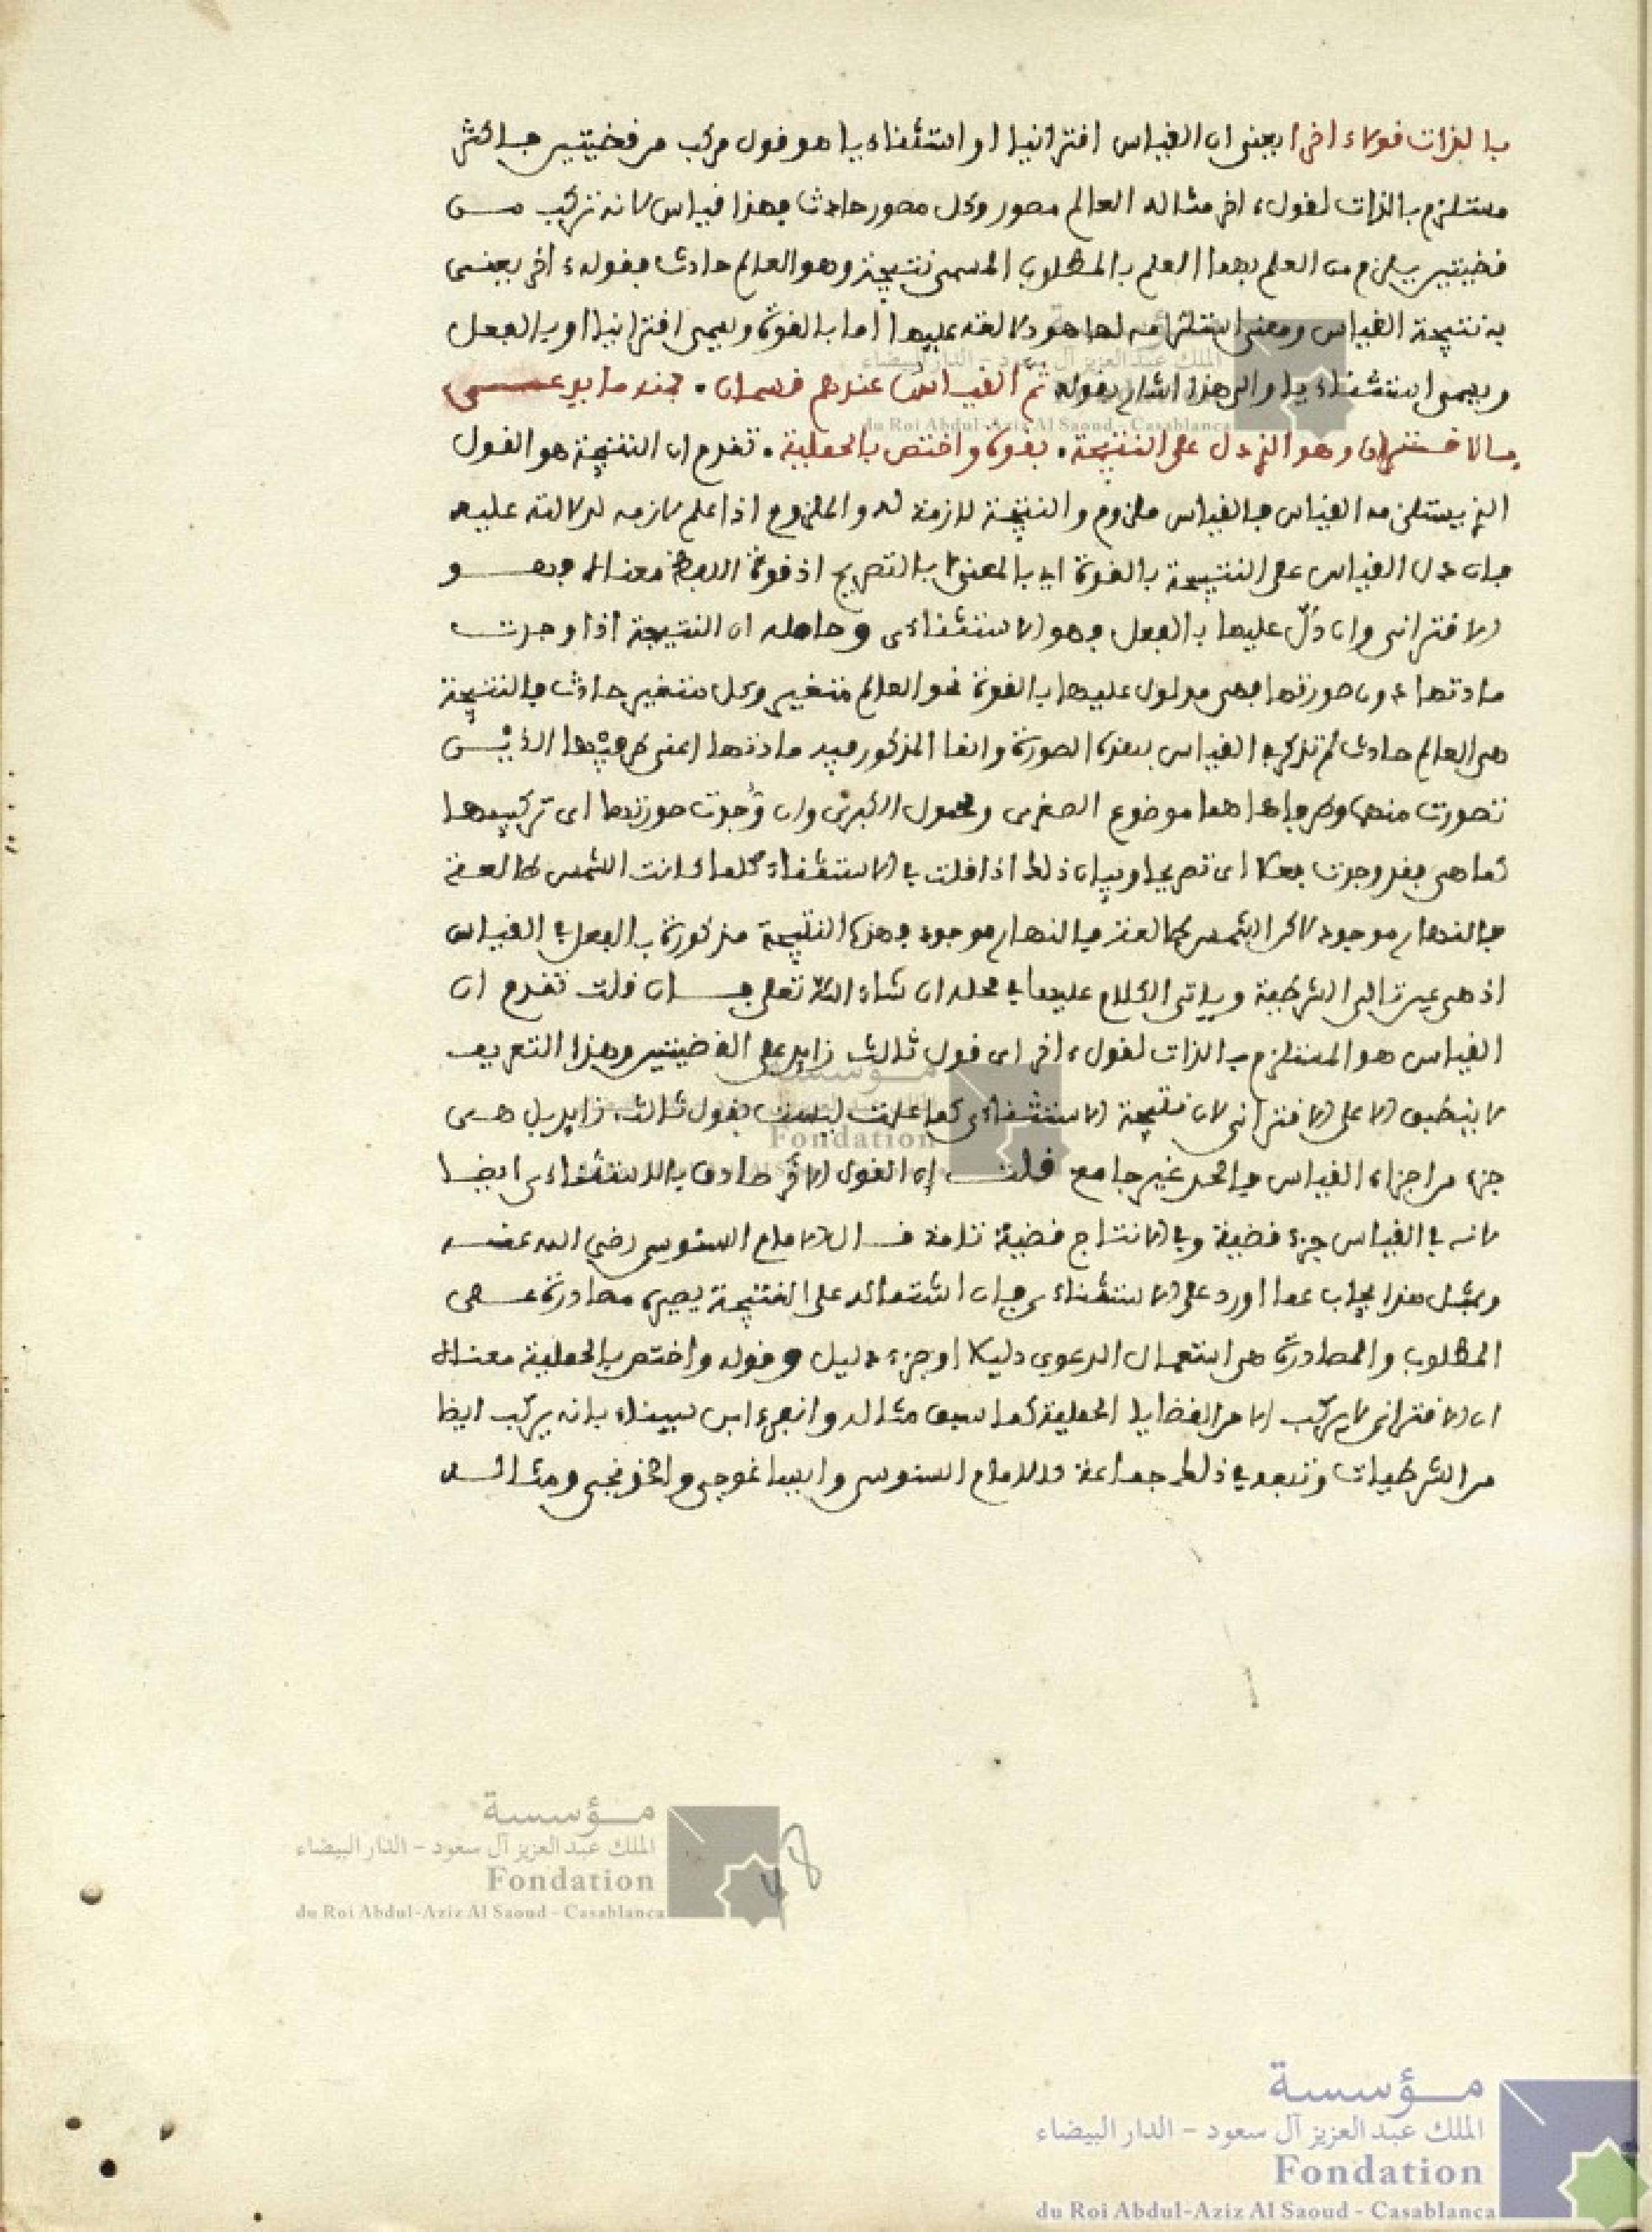 بالذات قولا ءاخرا يعني ان القياس اقترانيا او استثناءيا هو قول مركب من قضيتين فاكثر
مستلزم بالذات لقول ءاخر مثاله العالم مصور وكل مصور حادث فهذا قياس لانه تركب مـــن
قضيتين يلزم من العلم بهما العلم بالمطلوب المسمى نتيجة وهو العالم حادث فقوله ءاخر يعنـى
به نتيجة القياس ومعنى استلزامه لها هو دلالته عليها اما بالقوة ويسمى اقترانيا او بالفعل
ويسمى استثناءيا والى هذا اشار بقوله ثم القياس عندهم قسمان . فمنه ما يدعــــى
بالاقـــتران وهو الذي دل على النتيجة . بقوة واختص بالحملية . تقدم ان النتيجة هو القول
الذي يستلزمه القياس فالقياس ملزوم والنتيجة لازمة له والملزوم اذا علم لازمه لدلالته عليه
فان دل القياس على النتيجة بالقوة اي بالمعنى لا بالتصريح اذ قوة اللفظ معناه فهــــو
الاقتراني وان دلّ عليها بالفعل فهو الاستثناءي وحاصله ان النتيجة اذا وجدت
مادتها دون صورتها فهي مدلول عليها بالقوة نحو العالم متغير وكل متغير حادث فالنتيجة
هي العالم حادث لم تذكر في القياس بهذه الصورة وانما المذكور فيه مادتها اعني طرفيها الذيـن
تصورت منهما وطرفاها هما موضوع الصغرى ومحمول الكبرى وان وُجدت صورتها اي تركيبها
كما هي فقد وجدت فعلا اي تصريحا وبيان ذلك اذا قلت في الاستثناء كلما كانت الشمس طالعة
فالنهار موجود لاكن الشمس طالعة فالنهار موجود فهذه النتيجة مذكورة بالفعل في القياس
اذ هي عين تالي الشرطية وياتي الكلام عليها في محله ان شاء الله تعلى فـــان قلت تقدم ان
القياس هو المستلزم بالذات لقول ءاخر اي قول ثالث زايد على القضيتين وهذا التعريف
لا ينطبق الا على الاقتراني لان نتيجة الاستثناءي كما علمت ليست بقول ثالث زايد بل هـى
جزء من اجزاء القياس فالحد غير جامع قلـــت ان القول الاخر صادق بالاستثناءي ايضا
لانه في القياس جزء قضية وفي الانتاج قضية تامة قـــال الامام السنوسي رضي الله عنـــه
وبمثل هذا يجاب عما اورد على الاستثناءي فان اشتماله على النتيجة يصيره مصادرة عـــلى
المطلوب والمصادرة هي استعمال الدعوى دليلا او جزء دليل وقوله واختص بالحملية معناه
ان الاقتراني لا يركب الا من القضايا الحملية كما سبق مثاله وانفرد ابن سيناء بانه يركب ايضا
من الشرطيات وتبعه في ذلك جماعة كالامام السنوسي وايساغوجي والخونجي ومثالـــه
مؤسسة
الملك عبد العزيز آل سعود - الدار البيضاء
Fondation
du Roi Abdul-Aziz Al Saoud - Casablanca
مؤسسة
الملك عبد العزيز آل سعود - الدار البيضاء
Fondation
du Roi Abdul-Aziz Al Saoud - Casablanca